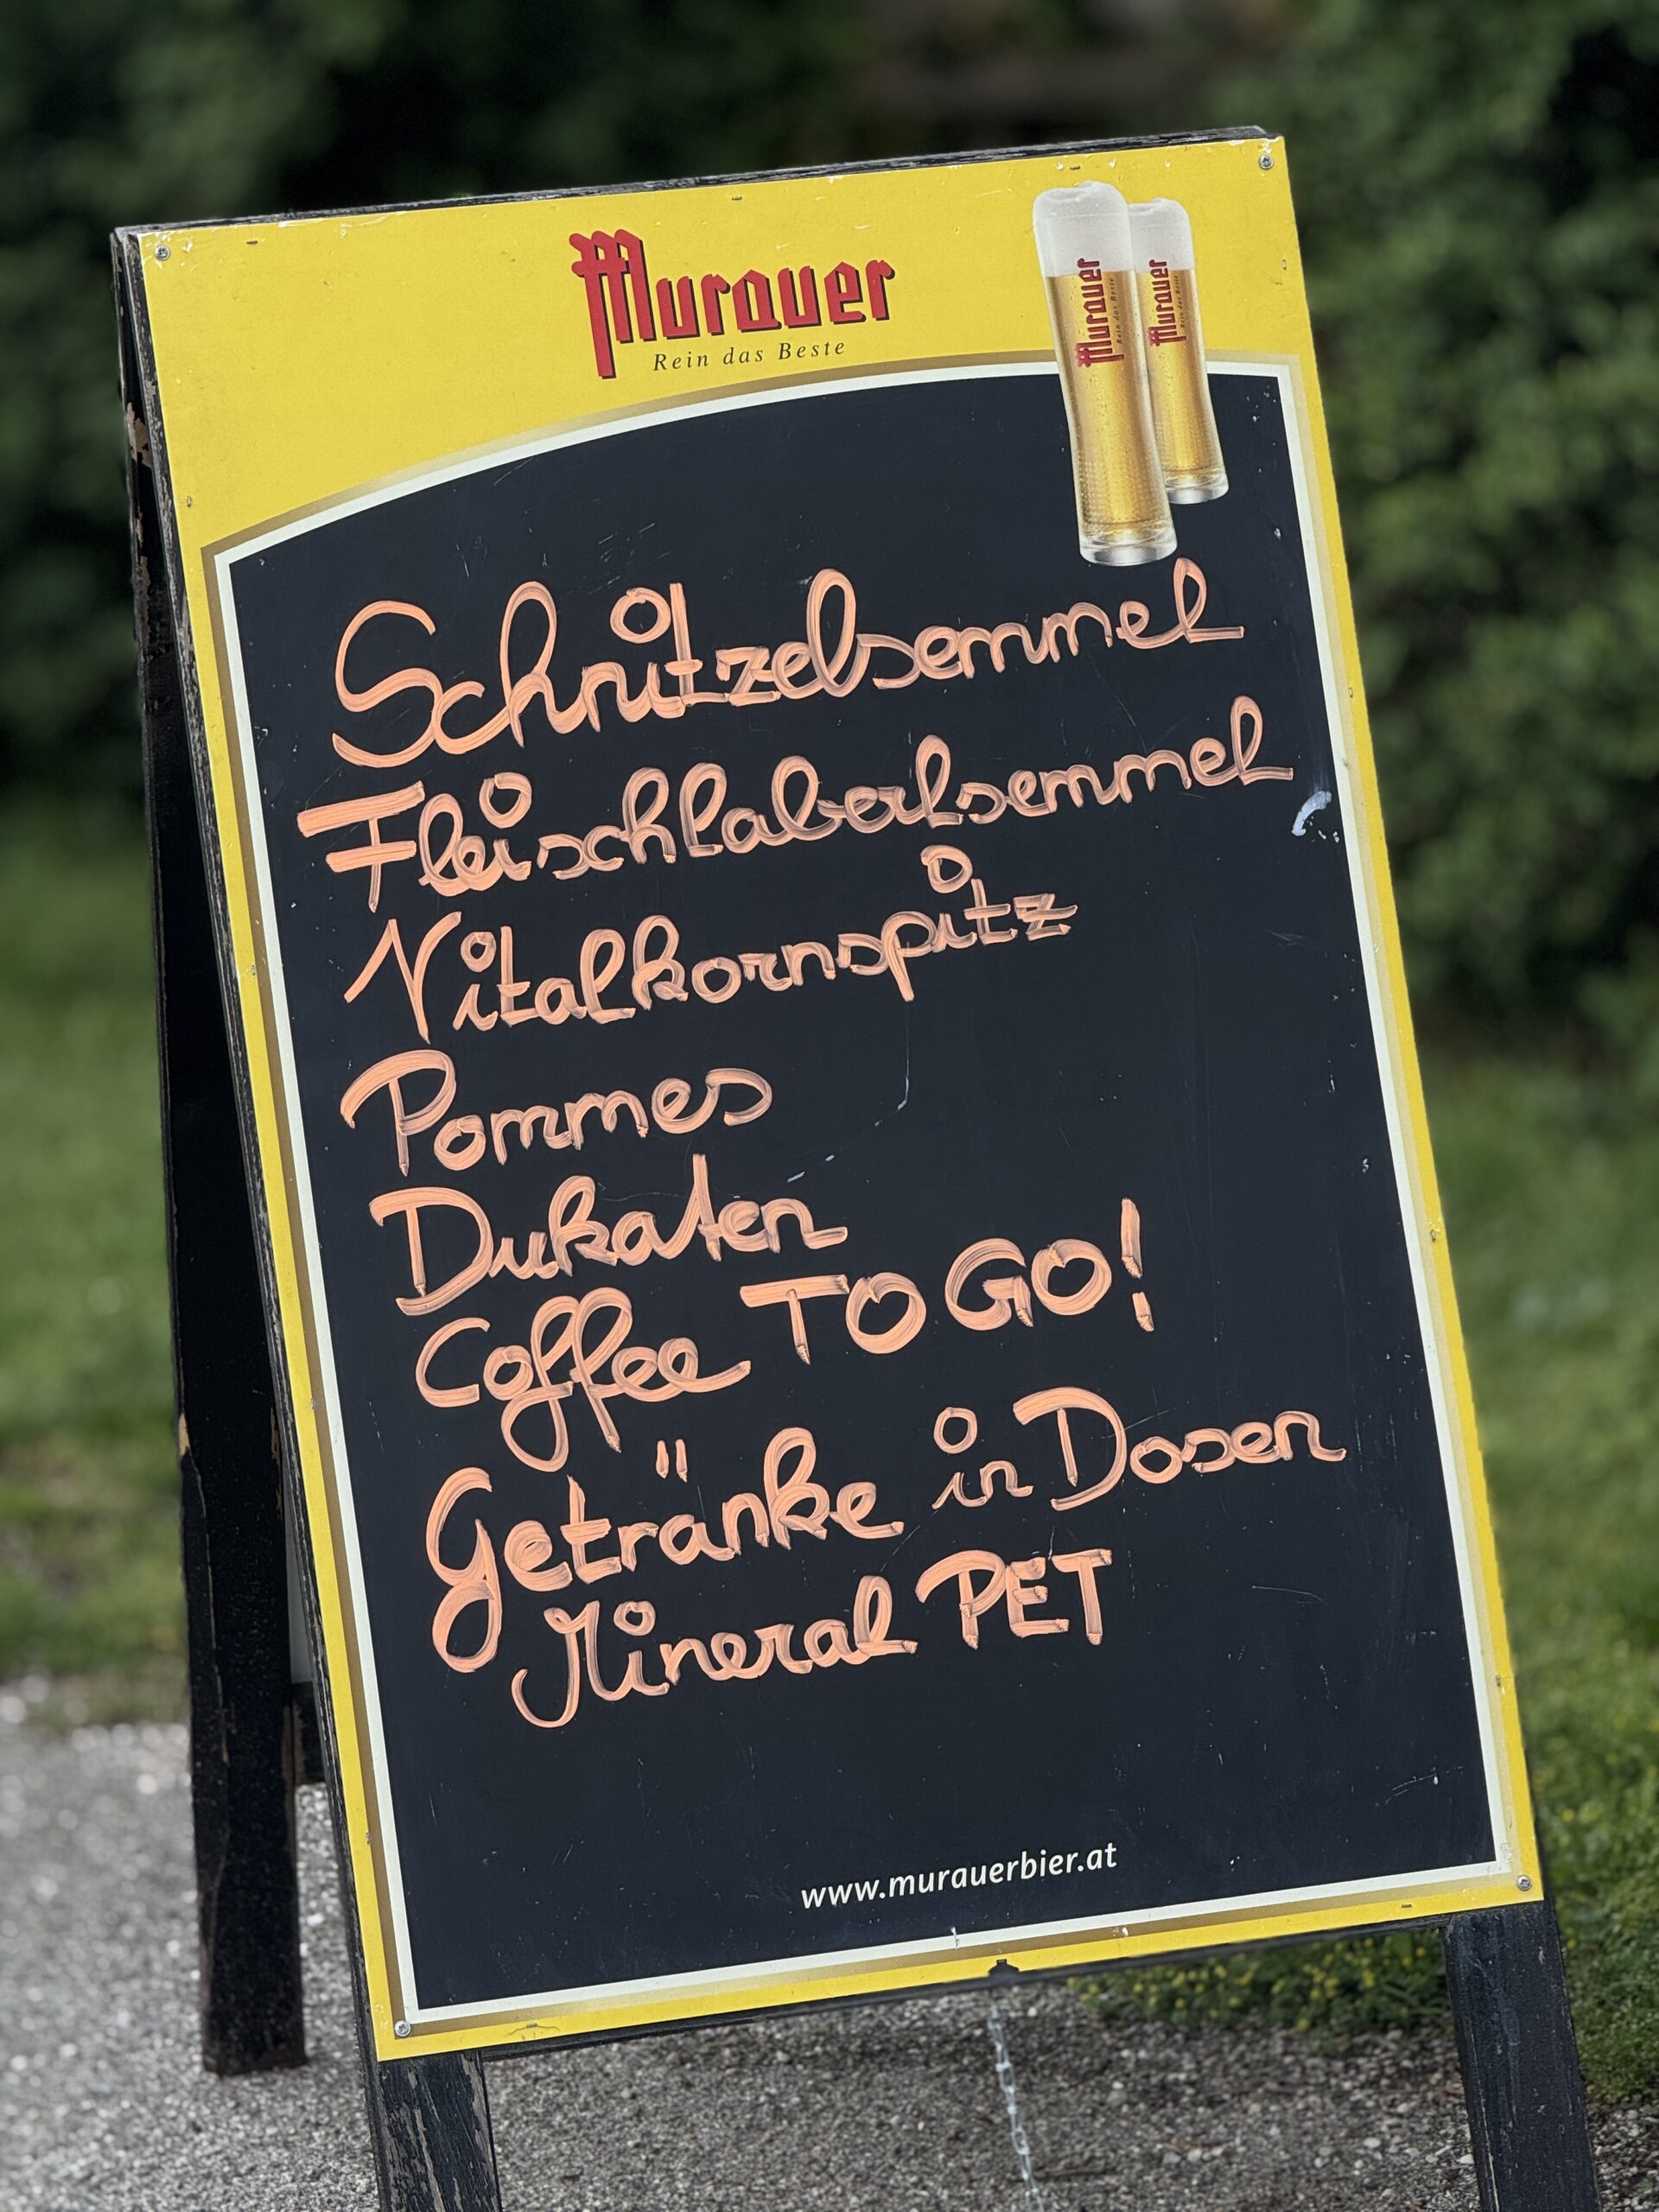 Murauer
Rein das Beste
Murauer
Rein das Beste
Murauer
Rein das Beste
Schnitzelsemmel
Fleischlabalsemmel
Vitalkornspitz
Pommes
Dukaten
Coffee TO GO!
Getränke in Dosen
Mineral PET
www.murauerbier.at